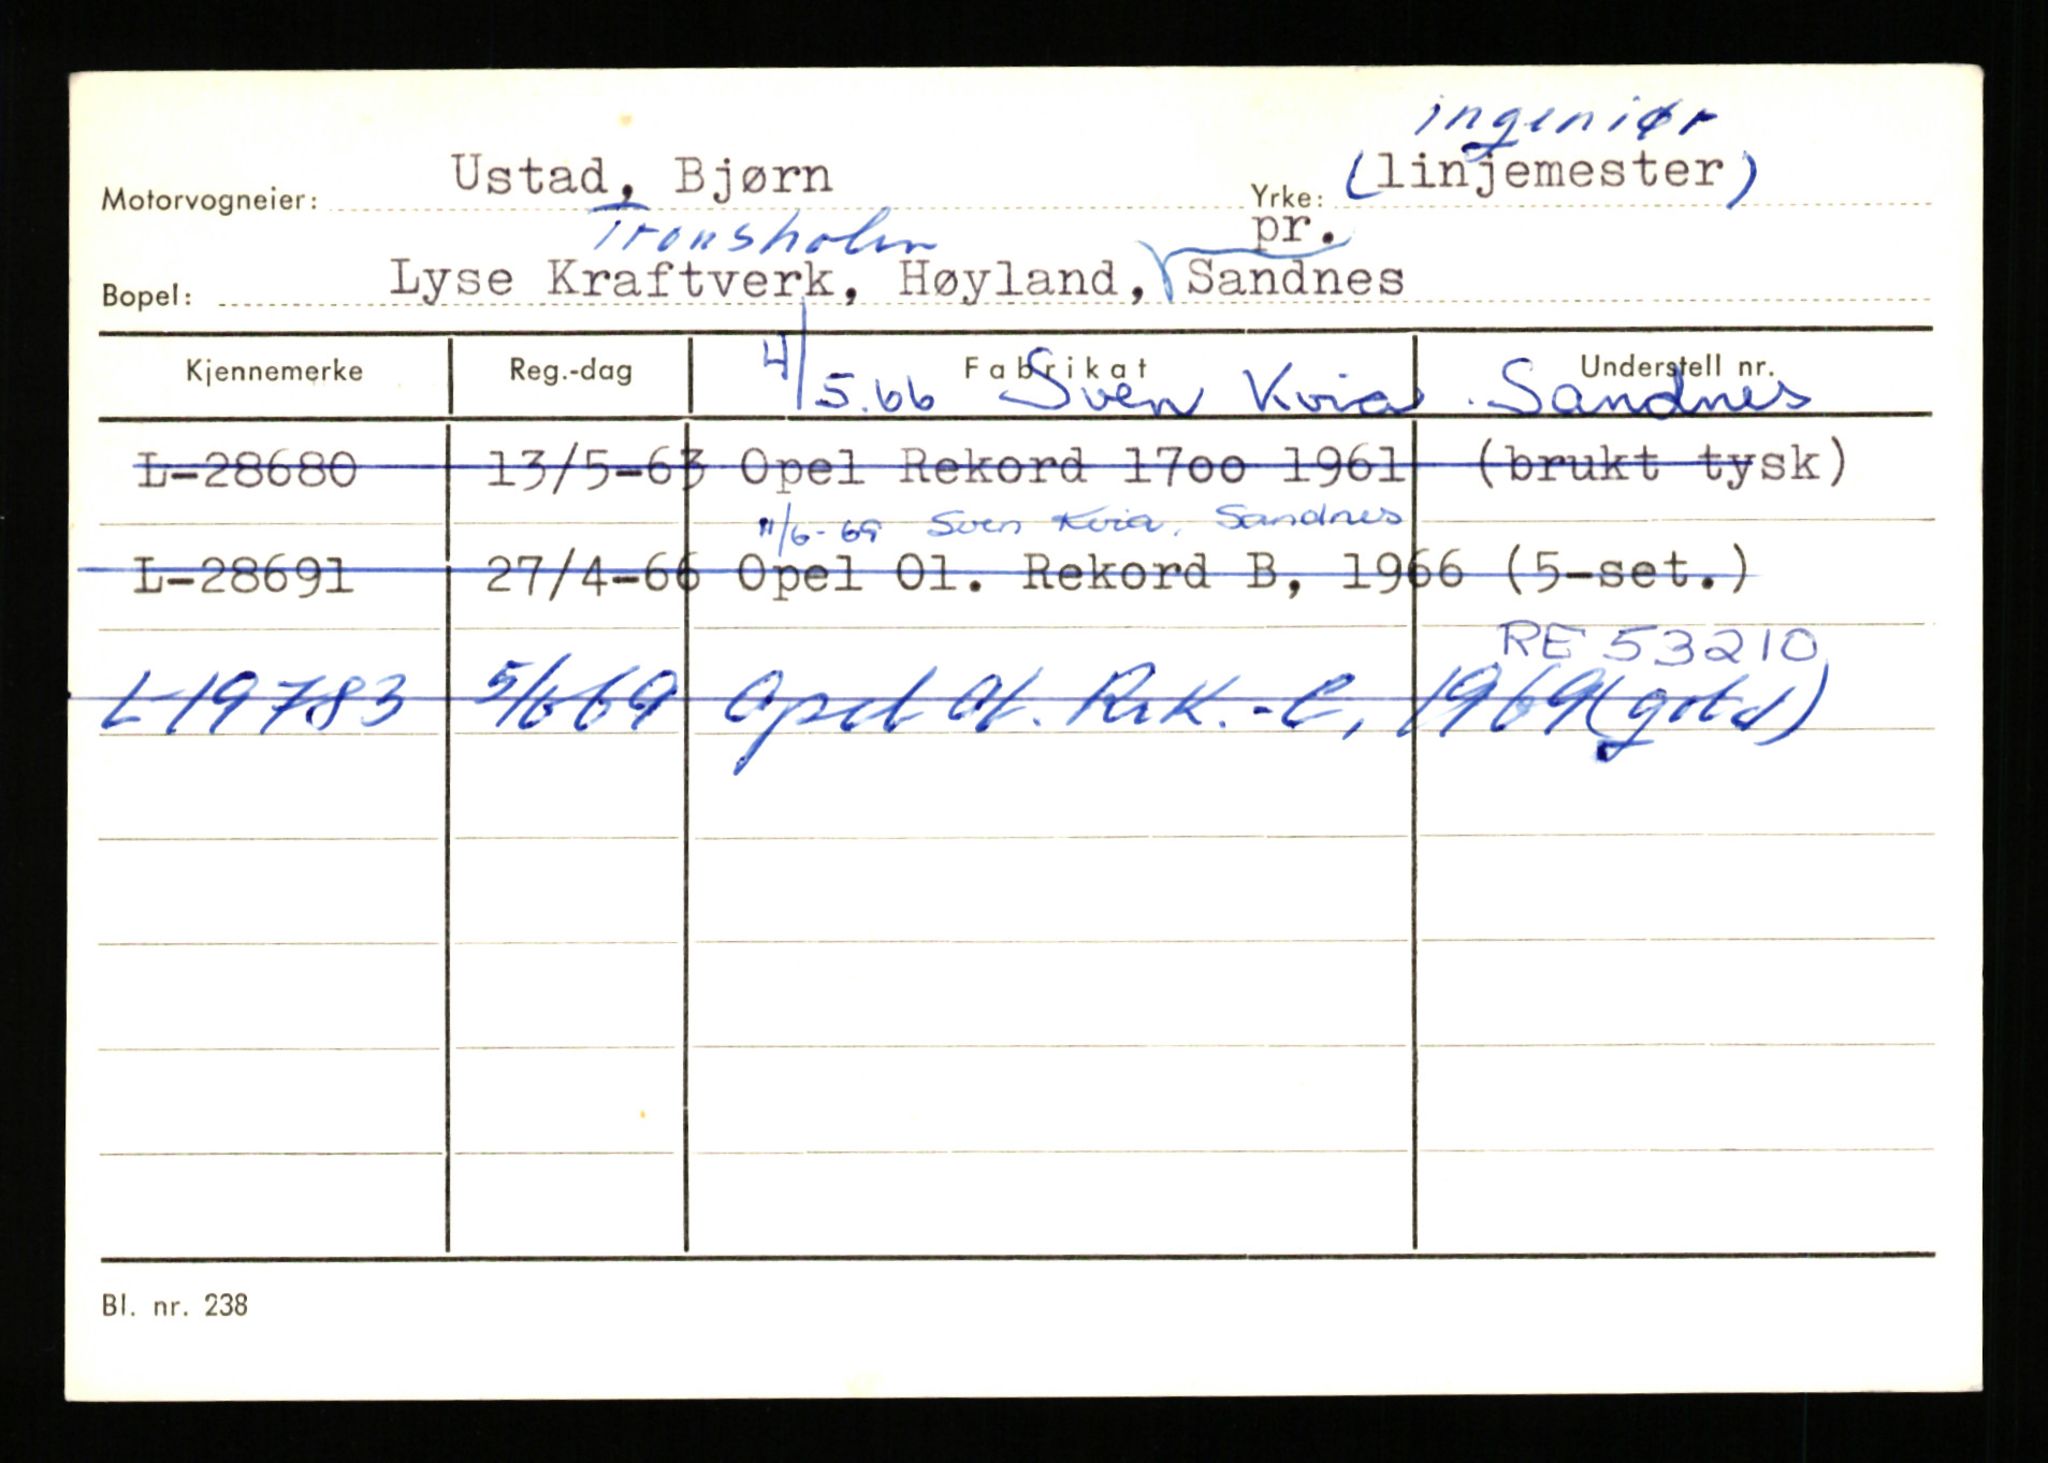 ingeniør
Motorvogneier: Ustad, Bjørn Yrke: (linjemester)
Tronsholen pr.
Bopel: Lyse Kraftverk, Høyland, Sandnes
Kjennemerke Reg.-dag Fabrikat Understell nr.
4/5.66 Sven Kvia. Sandnes
L-28680 13/5-63 Opel Rekord 1700 1961 (brukt tysk)
11/6-69 Sven Kvia. Sandnes
L-28691 27/4-66 Opel Ol. Rekord B, 1966 (5-set.)
RE 53210
L-19783 5/6 69 Opel Ol. Rek. - C, 1969 (gold)
Bl. nr. 238